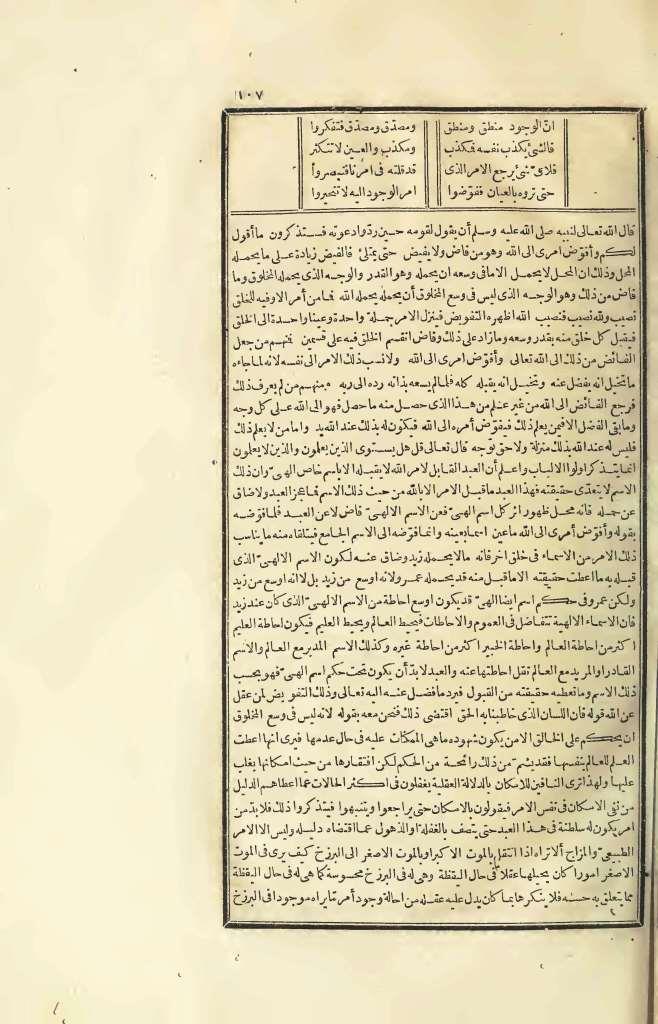 ١٠٧
انّ الوجود منطق ومنطق ومصدّق ومصدّق فتفكروا
فالشئ يكذب نفسه فيكذب ومكذب والعين لا تتكثر
فلاىّ شئ يرجع الامر الذى قد قلته فى امرنا فتبصروا
حتى تروه بالعيان ففوّضوا امر الوجود اليه لا تتحيروا
قال الله تعالى لنبيه صلى الله عليه وسلم أن يقول لقومه حين ردّوا دعوته فستذكرون ما أقول
لكم وأفوّض امرى الى الله وهو من فاض ولا يفيض حتى يمتلئ فالفيض زيادة على ما يحمله
المحل وذلك ان المحل لا يحمل الا ما فى وسعه ان يحمله وهو القدر والوجه الذى يحمله المخلوق وما
فاض من ذلك وهو الوجه الذى ليس فى وسع المخلوق أن يحمله يحمله الله فما من أمر الا وفيه للخلق
نصيب ولله نصيب فنصيب الله اظهره التفويض فينزل الامر جملة واحدة وعينا واحدة الى الخلق
فيقبل كل خلق منه بقدر وسعه وما زاد على ذلك وفاض انقسم الخلق فيه على قسمين فمنهم من جعل
الفائض من ذلك الى الله تعالى وأفوّض امرى الى الله ولا نسب ذلك الامر الى نفسه لانه لما جاءه
ما تخيل انه يفضل عنه وتخيل انه يقبله كله فلما لم يسعه بذاته رده الى ربه ومنهم من لم يعرف ذلك
فرجع الفائض الى الله من غير علم من هذا الذى حصل منه ما حصل فهو الى الله على كل وجه
وما بقى الفضل الا فيمن يعلم ذلك فيفوّض أمره الى الله فيكون له بذلك عند الله يد واما من لا يعلم ذلك
فليس له عند الله بذلك منزلة ولا حق توجه قال تعالى قل هل يستوى الذين يعلمون والذين لا يعلمون
انما يتذكر اولوا الالباب واعلم أن العبد القابل لامر الله لا يقبله الا باسم خاص الهىّ وان ذلك
الاسم لا يتعدّى حقيقته فهذا العبد ما قبل الامر الا بالله من حيث ذلك الاسم فما عجز العبد ولا ضاق
عن حمله فانه محل ظهور اثر كل اسم الهىّ فعن الاسم الالهىّ فاض لا عن العبد فلما فوّضه
بقوله وأفوّض أمرى الى الله ما عين اسما بعينه وانما فوّضه الى الاسم الجامع فيتلقاه منه ما يناسب
ذلك الامر من الاسماء فى خلق اخر فانه ما لا يحمله زيد وضاق عنه لكون الاسم الالهىّ الذى
قبله به ما اعطت حقيقته الا ما قبل منه قد يحمله عمرو لانه اوسع من زيد بل لا انه اوسع من زيد
ولكن عمرو فى حكم اسم ايضا الهىّ قد يكون اوسع احاطة من الاسم الالهىّ الذى كان عند زيد
فان الاسماء الالهية تتفاضل فى العموم والاحاطات فيحيط العالم ويحيط العليم فيكون احاطة العليم
اكثر من احاطة العالم واحاطة الخبير اكثر من احاطة غيره وكذلك الاسم المدبر مع العالم والاسم
القادر او المريد مع العالم تقل احاطتها عنه والعبد لا بدّ أن يكون تحت حكم اسم الهىّ فهو بحسب
ذلك الاسم وما تعطيه حقيقته من القبول فيرد ما فضل عنه اليه تعالى وذلك التفويض لمن عقل
عن الله قوله فان اللسان الذى خاطبنا به الحق اقتضى ذلك فنحن معه بقوله لانه ليس فى وسع المخلوق
ان يحكم على الخالق الا من يكون شهوده ما هى الممكنات عليه فى حال عدمها فيرى انها اعطت
العلم للعالم بنفسها فقد يشم من ذلك رائحة من الحكم لكن افتقارها من حيث امكانها يغلب
عليها ولهذا ترى النافين للامكان بالدلالة العقلية يغفلون فى اكثر الحالات عما اعطاهم الدليل
من نفى الامكان فى نفس الامر فيقولون بالامكان حتى يراجعوا وينتبهوا فيتذكروا ذلك فلا بدّ من
امر يكون له سلطنة فى هذا العبد حتى يتصف بالغفلة او الذهول عما اقتضاه دليله وليس الا الامر
الطبيعىّ والمزاج ألا تراه اذا انتقل بالموت الاكبر او بالموت الاصغر الى البرزخ كيف يرى فى الموت
الاصغر امورا كان يحيلها عقلا فى حال اليقظة وهى له فى البرزخ محسوسة كما هى له فى حال اليقظة
مما يتعلق به حسّه فلا ينكرها بما كان يدل عليه عقله من احالة وجود أمر ما يراه موجودا فى البرزخ